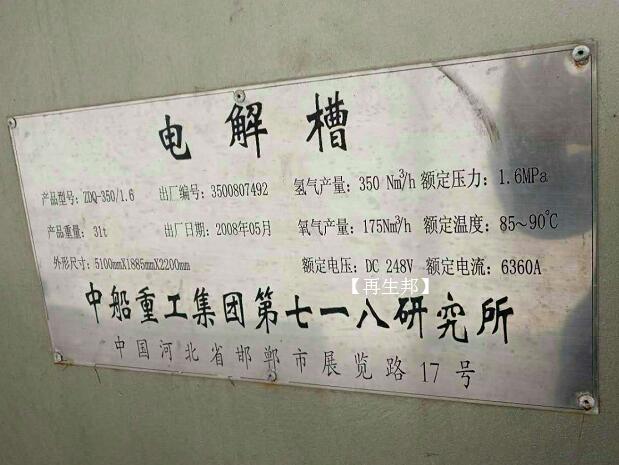 电解槽
产品型号: ZDQ-350/1.6 出厂编号: 3500807492 氢气产量: 350 Nm³/h 额定压力: 1.6MPa
产品重量: 31t 出厂日期: 2008年05月 氧气产量: 175Nm³/h 额定温度: 85～90℃
外形尺寸: 5100mmX1885mmX2200mm 额定电压: DC 248V 额定电流: 6360A
【再生邦】
中船重工集团第七一八研究所
中国河北省邯郸市展览路17号